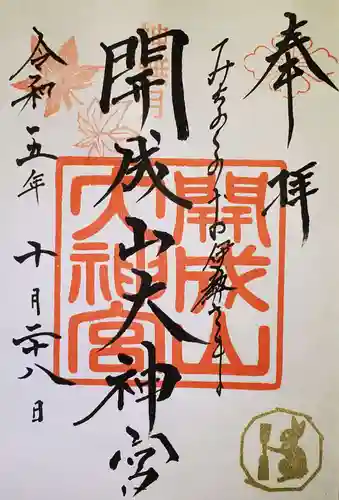 奉拝
みちのくのお伊勢さま
開成山大神宮
開成山
大神宮
令和五年十月二十八日